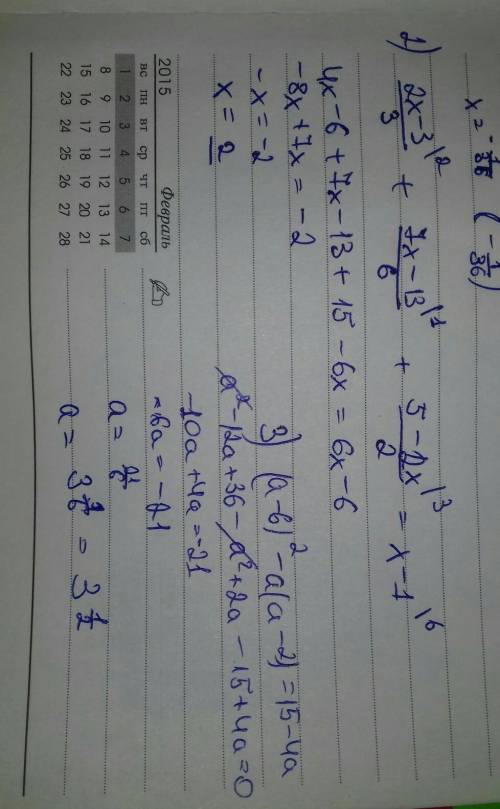 x = -1/36 (-1/36)
2) 2x-3/3 \2 + 7x-13/6 \1 + 5-2x/2 \3 = x-1 \6
4x-6+7x-13+15-6x = 6x-6
-8x+7x = -2
-x = -2
x = 2
3) (a-6)² - a(a-2) = 15-4a
a²-12a+36-a²+2a-15+4a=0
-10a+4a=-21
-6a = -21
a = 21/6
a = 3 1/2
2015 Февраль
вс пн вт ср чт пт сб
1 2 3 4 5 6 7
8 9 10 11 12 13 14
15 16 17 18 19 20 21
22 23 24 25 26 27 28